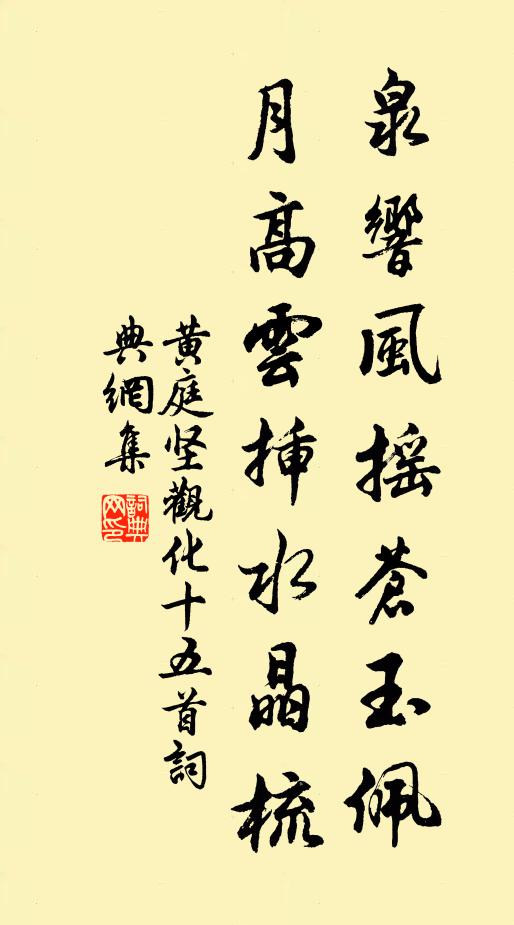 泉響風摇蒼玉佩
月高雲揷水晶梳
黄庭坚觀化十五首詞
典網集
詞典网印